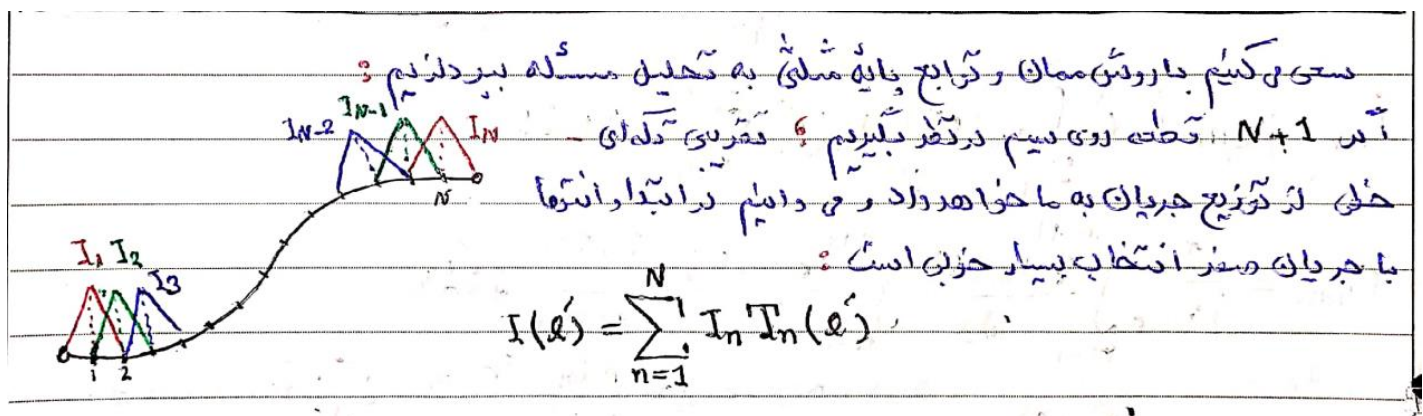 سعی می‌کنیم با روش ممان و توابع پایهٔ مثلثی به تحلیل مسئله بپردازیم :
اگر N+1 قطعه روی سیم در نظر بگیریم ؛ تقریبی تکه‌ای -
خطی از توزیع جریان به ما خواهد داد و می‌دانیم در ابتدا و انتها
با جریان صفر انتخاب بسیار خوبی است :
I(ℓ′) = \sum_{n=1}^{N} I_n T_n(ℓ′)
I_{N-2} I_{N-1} I_N
N
I_1 I_2 I_3
1 2